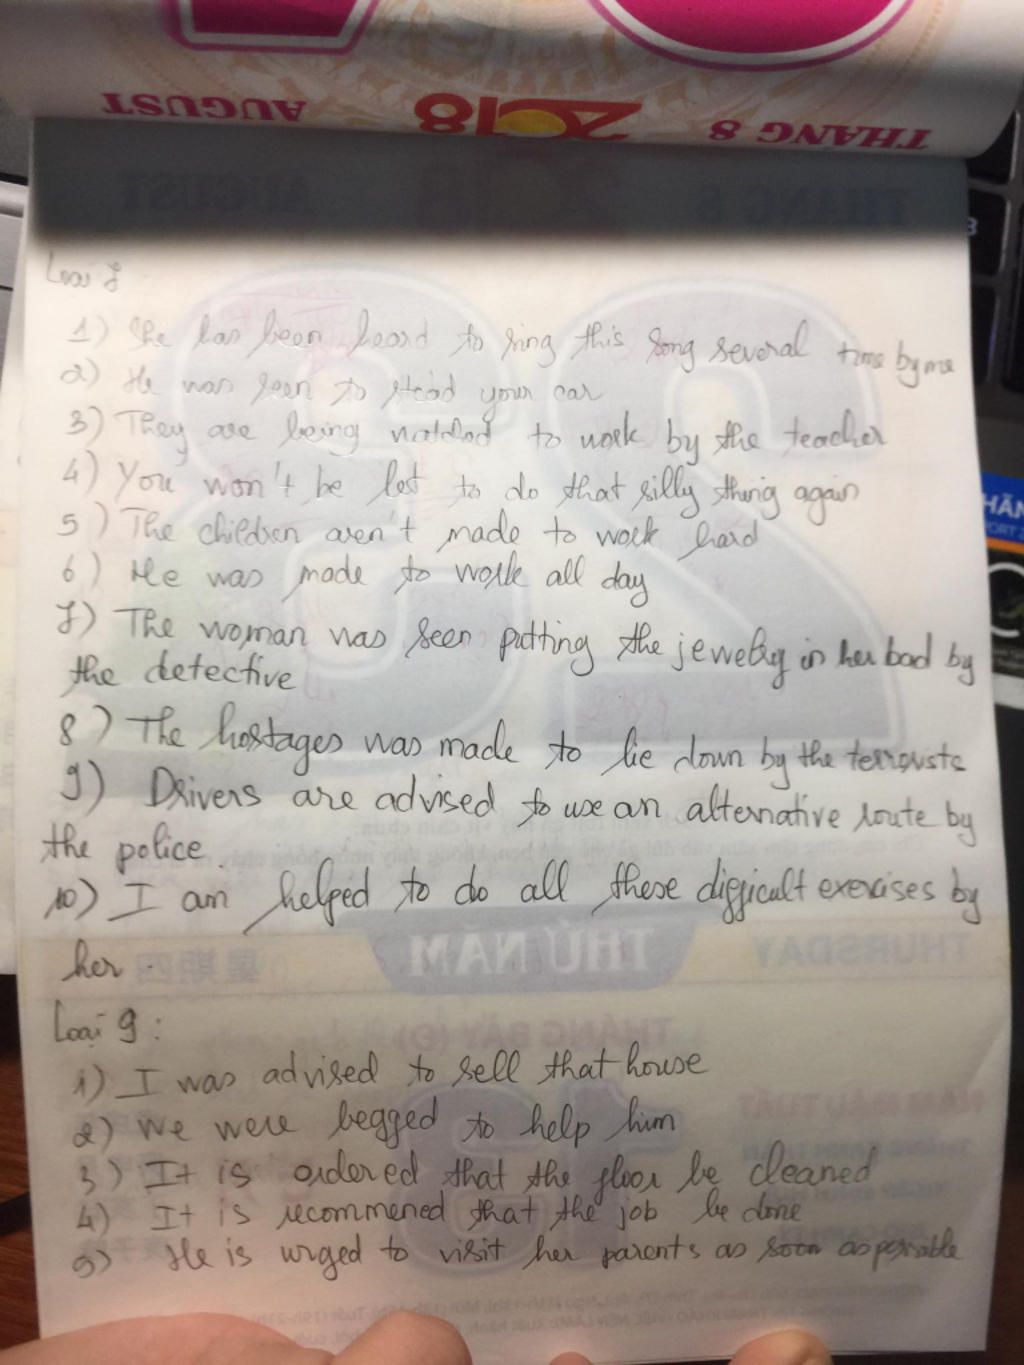 THÁNG 8 2018 AUGUST
THÁNG 8 AUGUST
Loại
1) She has been heard to sing this song several time by me
2) He was seen to your car
3) They are being to work by the teacher
4) You won't be let to do that silly thing again
5) The children aren't made to work hard
6) He was made to work all day
7) The woman was seen putting the jewelry in her bad by
the detective
8) The hostages was made to lie down by the terrorists
9) Drivers are advised to use an alternative route by
the police.
10) I am helped to do all these difficult exercises by
her.
THURSDAY THỨ NĂM 星期四
Loại 9:
1) I was advised to sell that house
2) We were begged to help him
3) It is ordered that the floor be cleaned
4) It is recommened that the job be done
5) He is urged to visit her parents as soon as possible